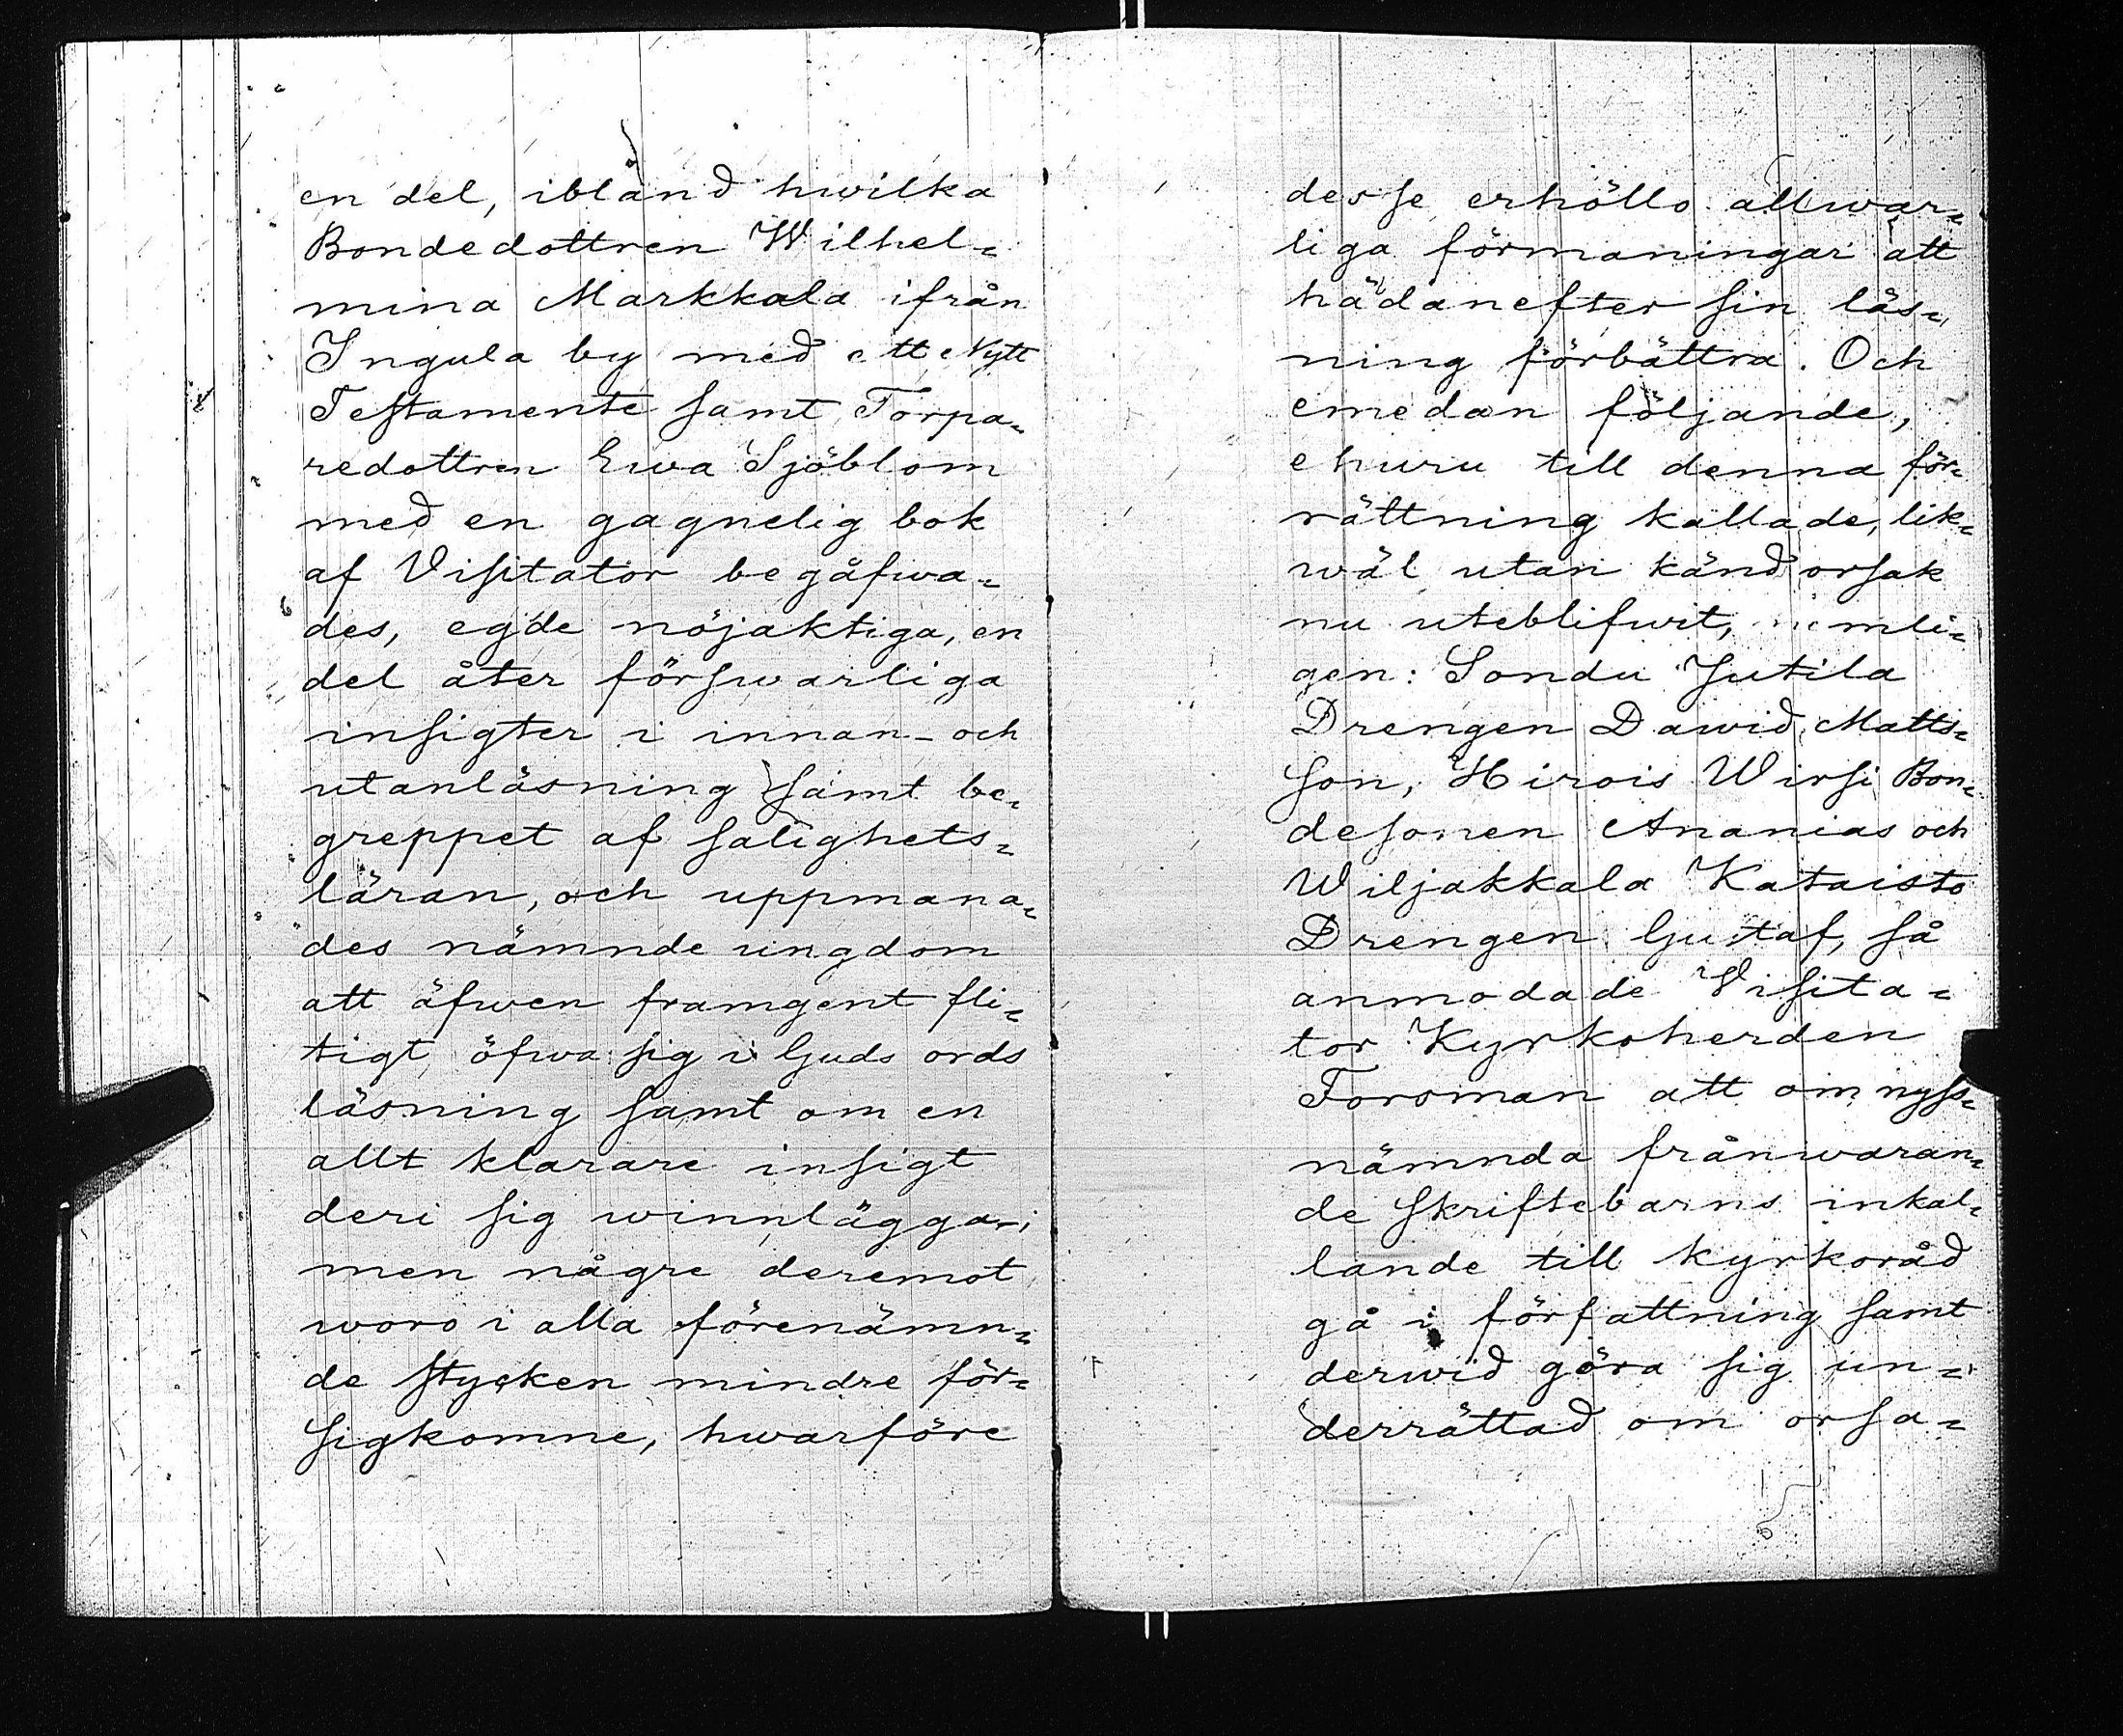 en del, ibland hwilka
Bondedottren Wilhel=
mina Markkala ifrån
Ingula by med ett Nytt
Testamente samt Torpa=
redottren Ewa Sjöblom
med en gagnelig bok
af Visitator begåfwa=
des, egde nöjaktiga, en
del åter förswarliga
insigter i innan- och
utanläsning samt be=
greppet af salighets=
läran, och uppmana=
des nämnde ungdom
att äfwen framgent fli=
tigt öfwa sig i Guds ords
läsning samt om en
allt klarare insigt
deri sig winnlägga;
men någre deremot
woro i alla förenämn=
de stycken mindre för=
sigkomne, hwarföre
desse erhöllo allwar=
liga förmaningar att
hädanefter sin läs=
ning förbättra. Och
emedan följande,
ehuru till denna för=
rättning kallade, lik=
wäl utan känd orsak
nu uteblifwit, nemli=
gen: Sondu Jutila
Drengen Dawid Matts=
son, Hirois Wirsi Bon=
desonen Ananias och
Wiljakkala Kataisto
Drengen Gustaf, så
anmodade Visita=
tor Kyrkoherden
Forsman att om nyss=
nämnda frånwaran=
de skriftebarns inkal=
lande till kyrkoråd
gå i författning samt
derwid göra sig un=
derrättad om orsa=